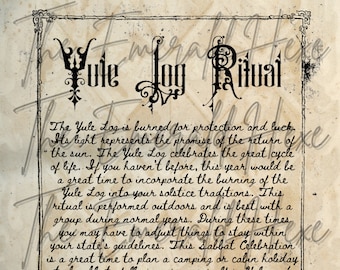 Yule Log Ritual
The Yule Log is burned for protection and luck.
Its light represents the promise of the return of
the sun. The Yule Log celebrates the great cycle
of life. If you haven't before, this year would be
a great time to incorporate the burning of the
Yule Log into your solstice traditions. This
ritual is performed outdoors and is best with a
group during normal years. During these times
you may have to adjust things to stay within
your state's guidelines. This Sabbat Celebration
is a great time to plan a camping or cabin holiday
The Emerald Hexe